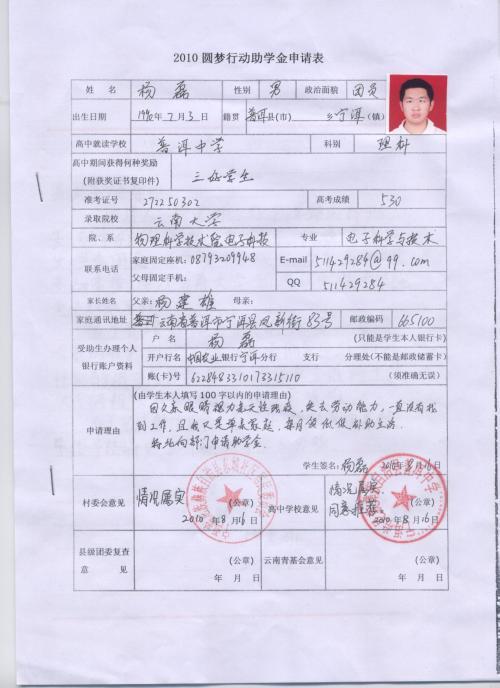 2010圆梦行动助学金申请表
姓 名 杨磊 性别 男 政治面貌 团员
出生日期 1990年7月3日 籍贯 普洱县(市) 乡宁洱(镇)
高中就读学校 普洱中学 科别 理科
高中期间获得何种奖励
(附获奖证书复印件) 三好学生
准考证号 272250302 高考成绩 530
录取院校 云南大学
院、系 物理科学技术院电子科技 专业 电子科学与技术
联系电话 家庭固定座机:08793209948 E-mail 511429284@qq.com
父母固定手机: QQ 511429284
家长姓名 父亲:杨建雄 母亲:
家庭通讯地址 云南省普洱市宁洱县凤新街83号 邮政编码 665100
受助生办理个人
银行账户资料
户 名 杨磊 (只能是学生本人银行卡)
开户行名 中国农业银行宁洱分行 支行 分理处(不能是邮政储蓄卡)
账(卡)号 6228483310173315110 (须准确无误)
申请理由
(由学生本人填写100字以内的申请理由)
因父亲眼睛视力 失去劳动能力,一直没有找
到工作,且我又是单亲家庭,每月 低保补助生活.
特此向部门申请助学金.
学生签名:杨磊 2010年8月16日
村委会意见 情况属实 (公章)
2010年8月16日
高中学校意见 情况属实
同意推荐 (公章)
2010年8月16日
县级团委复查
意 见 (公章)
年 月 日
云南青基会意见 (公章)
年 月 日